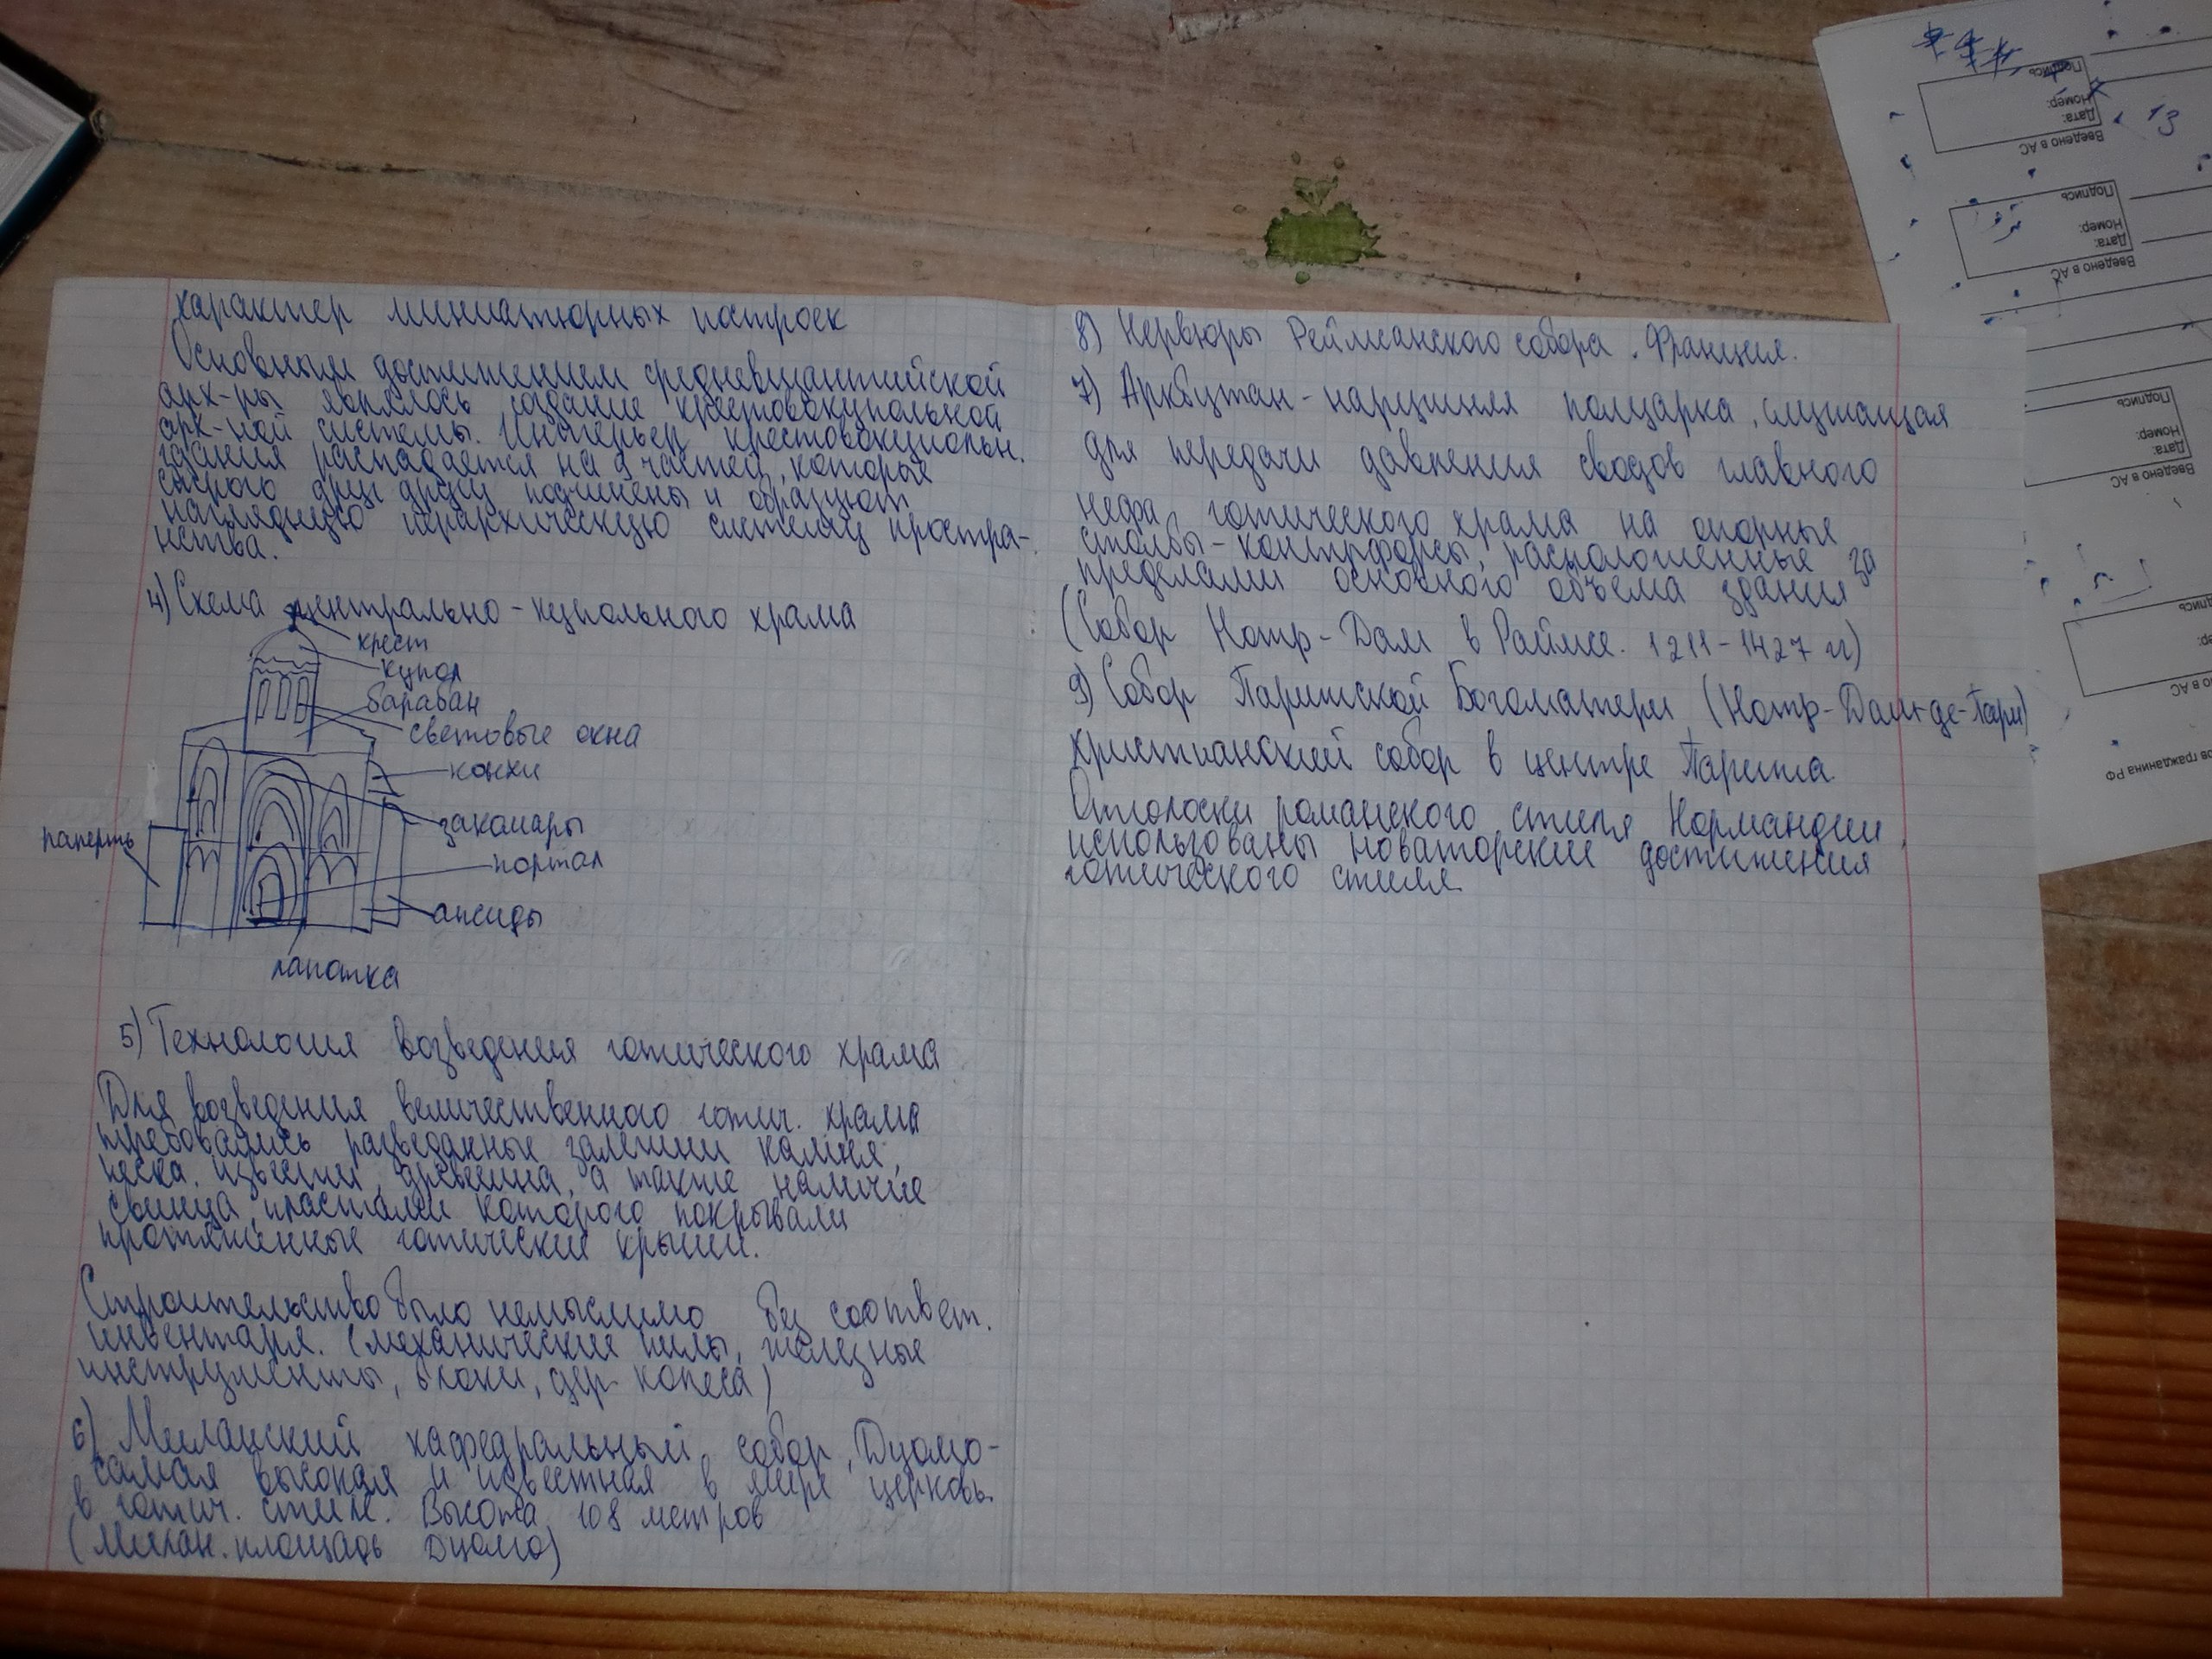 характер миниатюрных построек
Основным достижением средневизантийской
арх-ры являлось создание крестовокупольной
арх-ной системы. Интерьер крестовокупольн.
здания распадается на 9 частей, которые
строго друг другу подчинены и образуют
наглядную иерархическую систему простра-
нства.
4) Схема центрально-купольного храма
крест
купол
барабан
световые окна
конхи
закомары
паперть
портал
апсиды
лапатка
5) Технология возведения готического храма
Для возведения величественного готич. храма
требовались разведанные залежи камня,
песка, извести, древесина, а также наличие
свинца, пластами которого покрывали
протяжённые готические крыши.
Строительство было немыслимо без соответ.
инвентаря. (механические пилы, железные
инструменты, блоки, дер. колеса)
6) Миланский кафедральный собор, Дуомо-
самая высокая и известная в мире церковь
в готич. стиле. Высота 108 метров
(Милан. площадь Дуомо)
8) Нервюры Реймсанского собора. Франция.
7) Аркбутан - наружная полуарка, служащая
для передачи давления сводов главного
нефа готического храма на опорные
столбы - контрфорсы, расположенные за
пределами основного объема здания
(Собор Нотр-Дам в Раймсе. 1211-1427 гг)
9) Собор Парижской Богоматери (Нотр-Дам-де-Пари)
христианский собор в центре Парижа.
Отголоски романского стиля Нормандии,
использованы новаторские достижения
готического стиля.
Подпись
Номер:
Дата:
Введено в АС
13
Подпись
Номер:
Дата:
Введено в АС
Подпись
Номер:
Дата:
Введено в АС
гражданина РФ